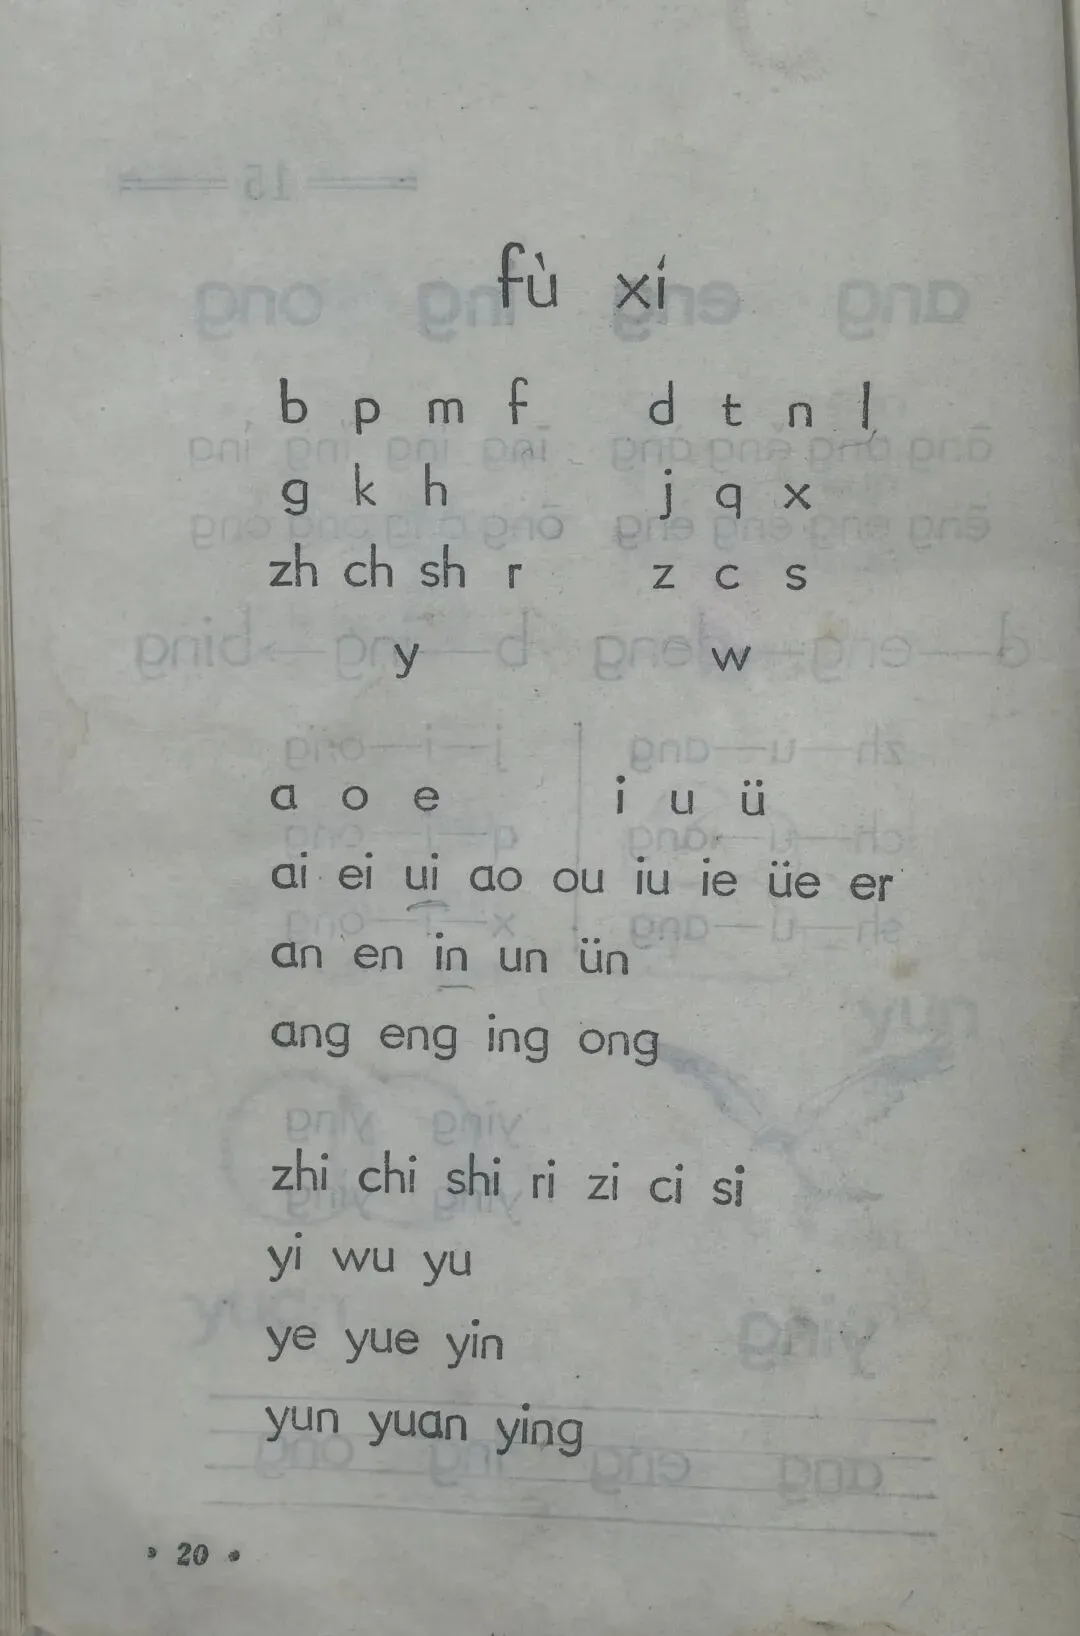 fù xí
b p m f d t n l
g k h j q x
zh ch sh r z c s
y w
a o e i u ü
ai ei ui ao ou iu ie üe er
an en in un ün
ang eng ing ong
zhi chi shi ri zi ci si
yi wu yu
ye yue yin
yun yuan ying
• 20 •